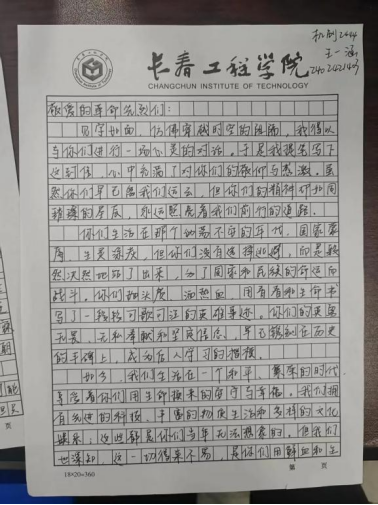 机制2444
王一涵
长春工程学院
CHANGCHUN INSTITUTE OF TECHNOLOGY
敬爱的革命先烈们：
见字如面，仿佛穿越时空的阻隔，我得以
与你们进行一场心灵的对话。于是我提笔写下
这封信，心中充满了对你们的敬仰与感激。虽
然你们早已离我们远去，但你们的精神却如同
璀璨的星辰，永远照亮着我们前行的道路。
你们生活在那个动荡不安的年代，国家蒙
辱，生灵涂炭，但你们没有选择逃避，而是毅
然决然地站了出来，为了国家和民族的命运而
战斗。你们抛头颅，洒热血，用青春和生命书
写了一我段可歌可泣的英雄事迹。你们的英勇
无畏、无私奉献和坚定信念，早已镌刻在历史
的丰碑上，成为后人学习的楷模。
如今，我们生活在一个和平、繁荣的时代
享受着你们用生命换来的安宁与幸福。我们拥
有先进的科技、丰富的物质生活和多样的文化
娱乐；这些都是你们当年无法想象的。但我们
也深知，这一切得来不易，是你们用鲜血和生
18×20=360
第 页
页